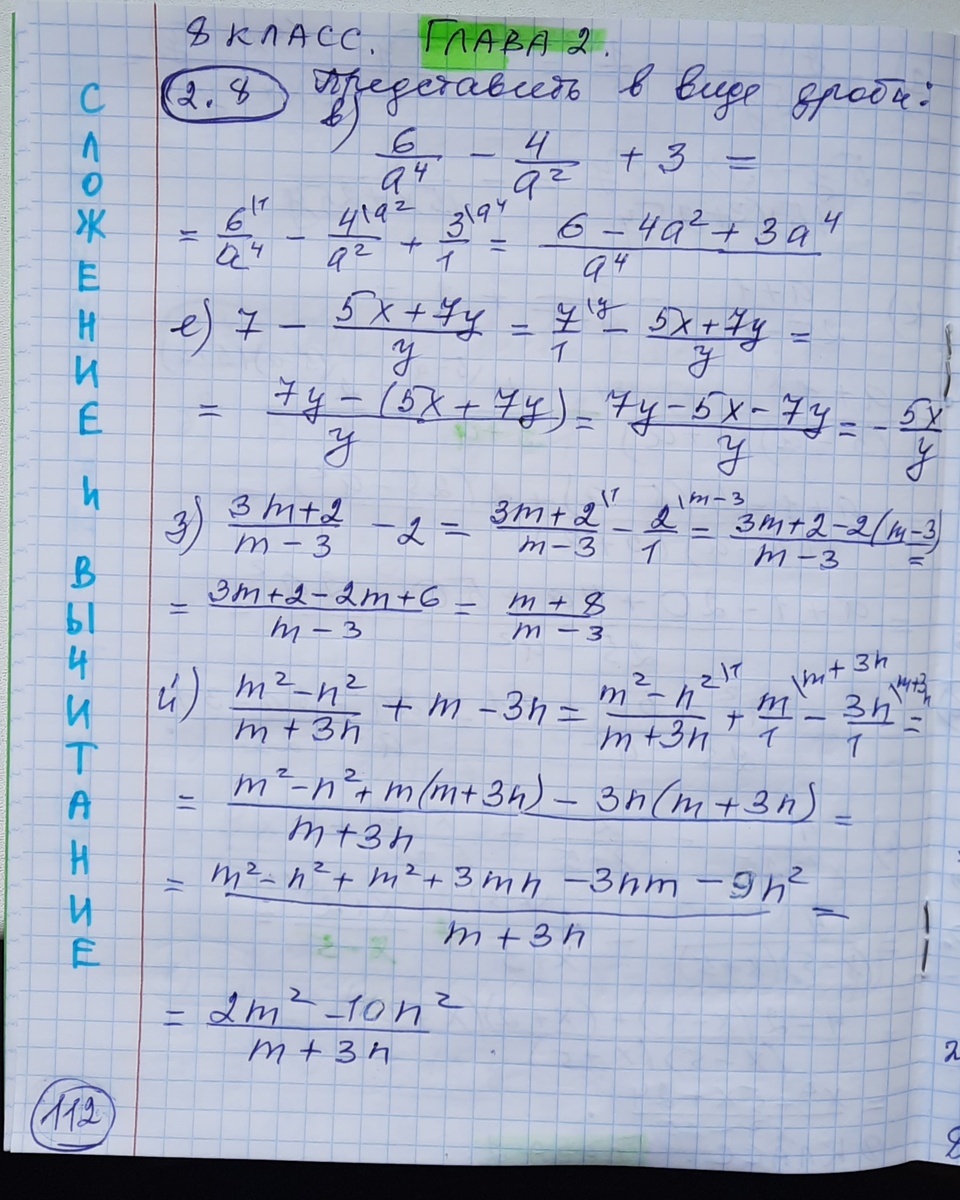 8 КЛАСС. ГЛАВА 2.
СЛОЖЕНИЕ И ВЫЧИТАНИЕ
2.8 Представить в виде дроби:
в) 6/a⁴ - 4/a² + 3 =
= 6\1/a⁴ - 4\a²/a² + 3\a⁴/1 = (6 - 4a² + 3a⁴)/a⁴
е) 7 - (5x + 7y)/y = 7\y/1 - (5x + 7y)/y =
= (7y - (5x + 7y))/y = (7y - 5x - 7y)/y = - 5x/y
з) (3m + 2)/(m - 3) - 2 = (3m + 2)\1/(m - 3) - 2\m-3/1 = (3m + 2 - 2(m - 3))/(m - 3) =
= (3m + 2 - 2m + 6)/(m - 3) = (m + 8)/(m - 3)
й) (m² - n²)/(m + 3n) + m - 3n = (m² - n²)\1/(m + 3n) + m\m+3n/1 - 3n\m+3n/1 =
= (m² - n² + m(m + 3n) - 3n(m + 3n))/(m + 3n) =
= (m² - n² + m² + 3mn - 3nm - 9n²)/(m + 3n) =
= (2m² - 10n²)/(m + 3n)
112